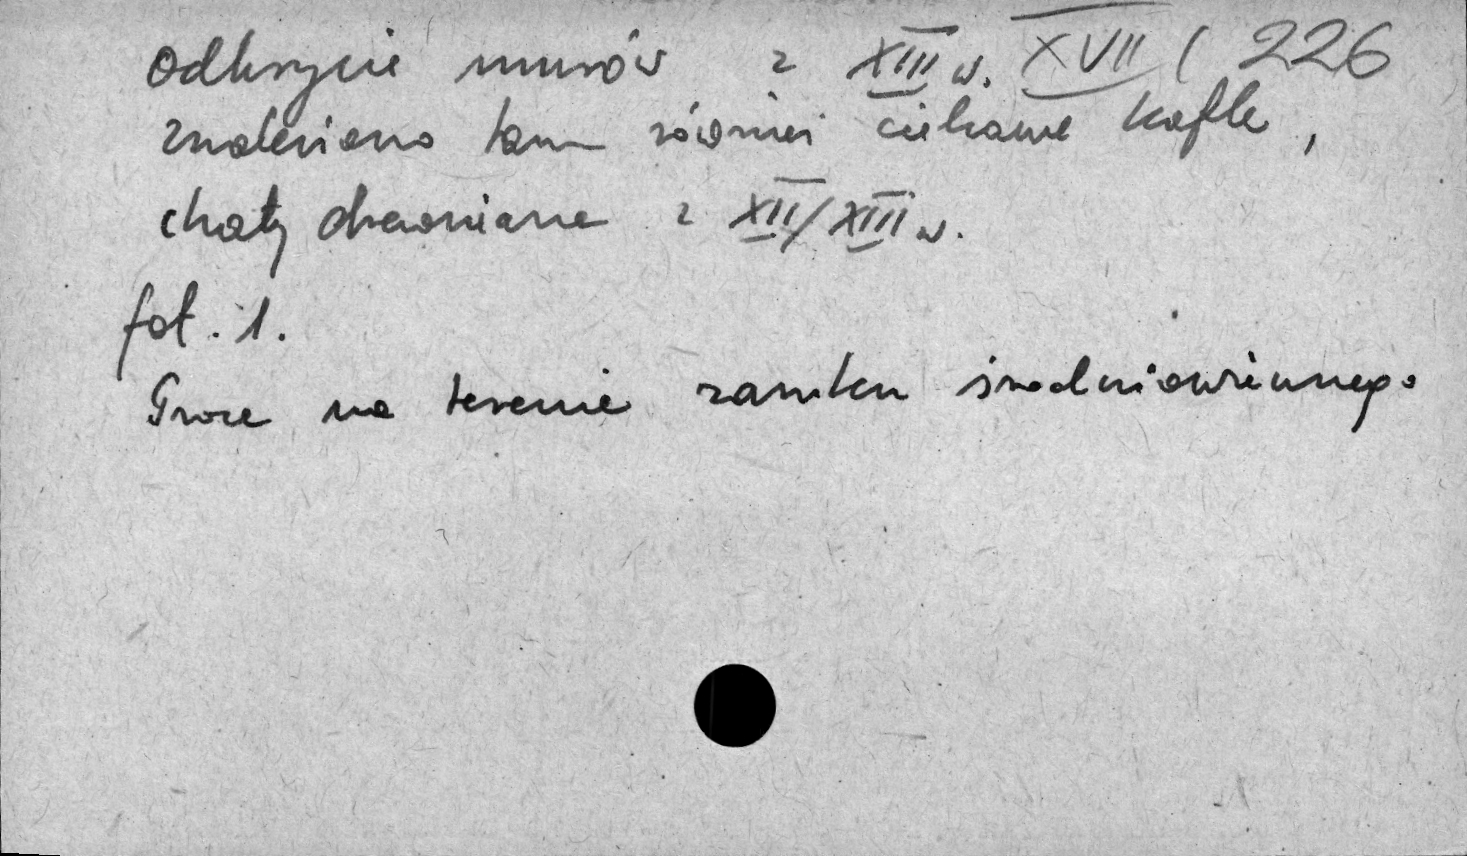 Odkrycie murów z XIII w. XVII / 226
znaleziono tam również ciekawe kafle,
chaty drewniane z XII/XIII w.
fot. 1.
Prace na terenie zamku średniowiecznego